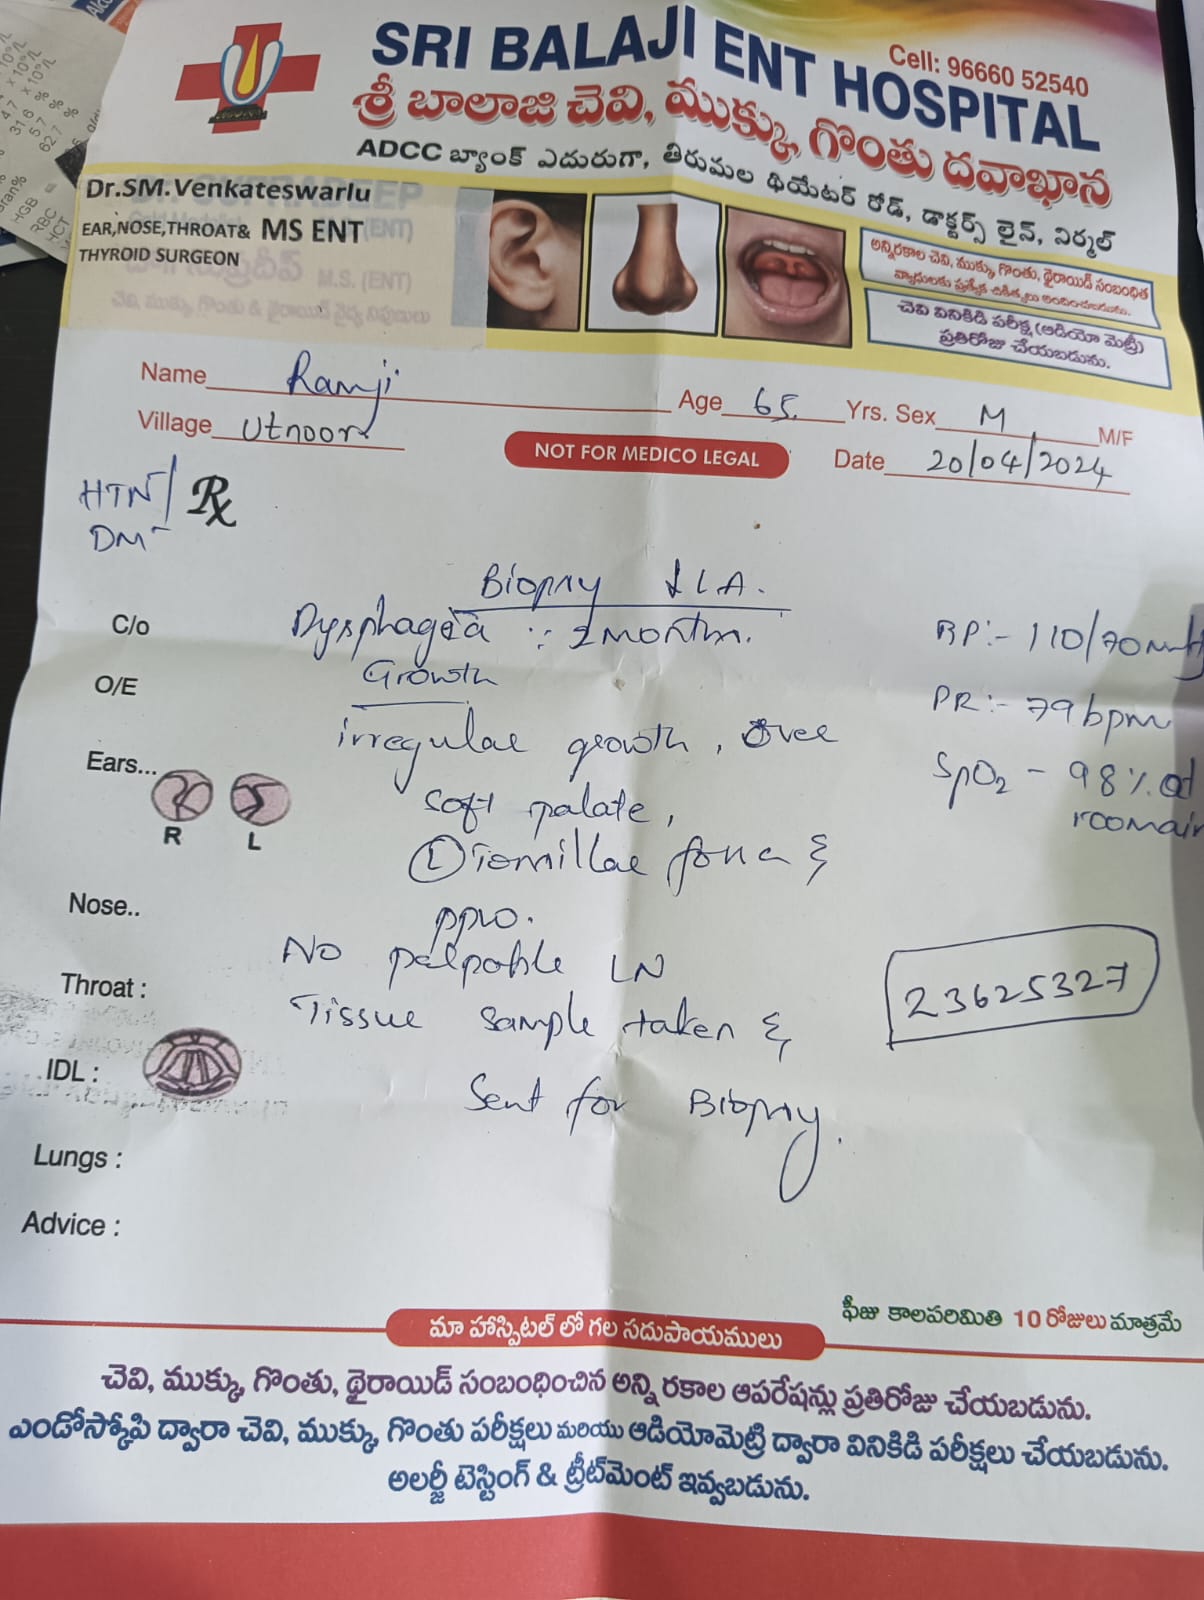 SRI BALAJI ENT HOSPITAL
Cell: 96660 52540
శ్రీ బాలాజి చెవి, ముక్కు, గొంతు దవాఖాన
ADCC బ్యాంక్ ఎదురుగా, తిరుమల థియేటర్ రోడ్, డాక్టర్స్ లైన్, నిర్మల్
Dr.SM.Venkateswarlu
EAR,NOSE,THROAT& MS ENT
THYROID SURGEON
M.S. (ENT)
చెవి, ముక్కు, గొంతు & థైరాయిడ్ వైద్య నిపుణులు
అన్నిరకాల చెవి, ముక్కు, గొంతు, థైరాయిడ్ సంబంధిత
వ్యాధులకు ప్రత్యేక చికిత్సలు అందించబడును.
చెవి వినికిడి పరీక్ష (ఆడియో మెట్రీ)
ప్రతిరోజు చేయబడును.
Name Ramji Age 65 Yrs. Sex M M/F
Village Utnoor NOT FOR MEDICO LEGAL Date 20/04/2024
HTN / Rx
DM -
Biopsy LA.
C/o Dysphagia : 2 months. BP:- 110/70
O/E Growth PR:- 79 bpm
irregular growth, over
Ears... soft palate, SpO2 - 98% at
room air
R L
(L) Tonsillar fossa &
Nose.. PPW.
No palpable LN
Throat : Tissue sample taken & 23625327
IDL : Sent for Biopsy.
Lungs :
Advice :
ఫీజు కాలపరిమితి 10 రోజులు మాత్రమే
మా హాస్పిటల్ లో గల సదుపాయములు
చెవి, ముక్కు, గొంతు, థైరాయిడ్ సంబంధించిన అన్ని రకాల ఆపరేషన్లు ప్రతిరోజు చేయబడును.
ఎండోస్కోపి ద్వారా చెవి, ముక్కు, గొంతు పరీక్షలు మరియు ఆడియోమెట్రి ద్వారా వినికిడి పరీక్షలు చేయబడును.
అలర్జీ టెస్టింగ్ & ట్రీట్‌మెంట్ ఇవ్వబడును.